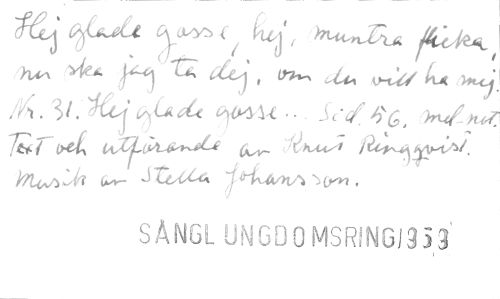 Hej glade gosse, hej, muntra flicka,
nu ska jag ta dej, om du vill ha mig.
Nr. 31. Hej glade gosse... Sid. 56. mel-not.
Text och utförande av Knut Ringqvist.
Musik av Stella Johansson.
SÅNGL UNGDOMSRING 1959